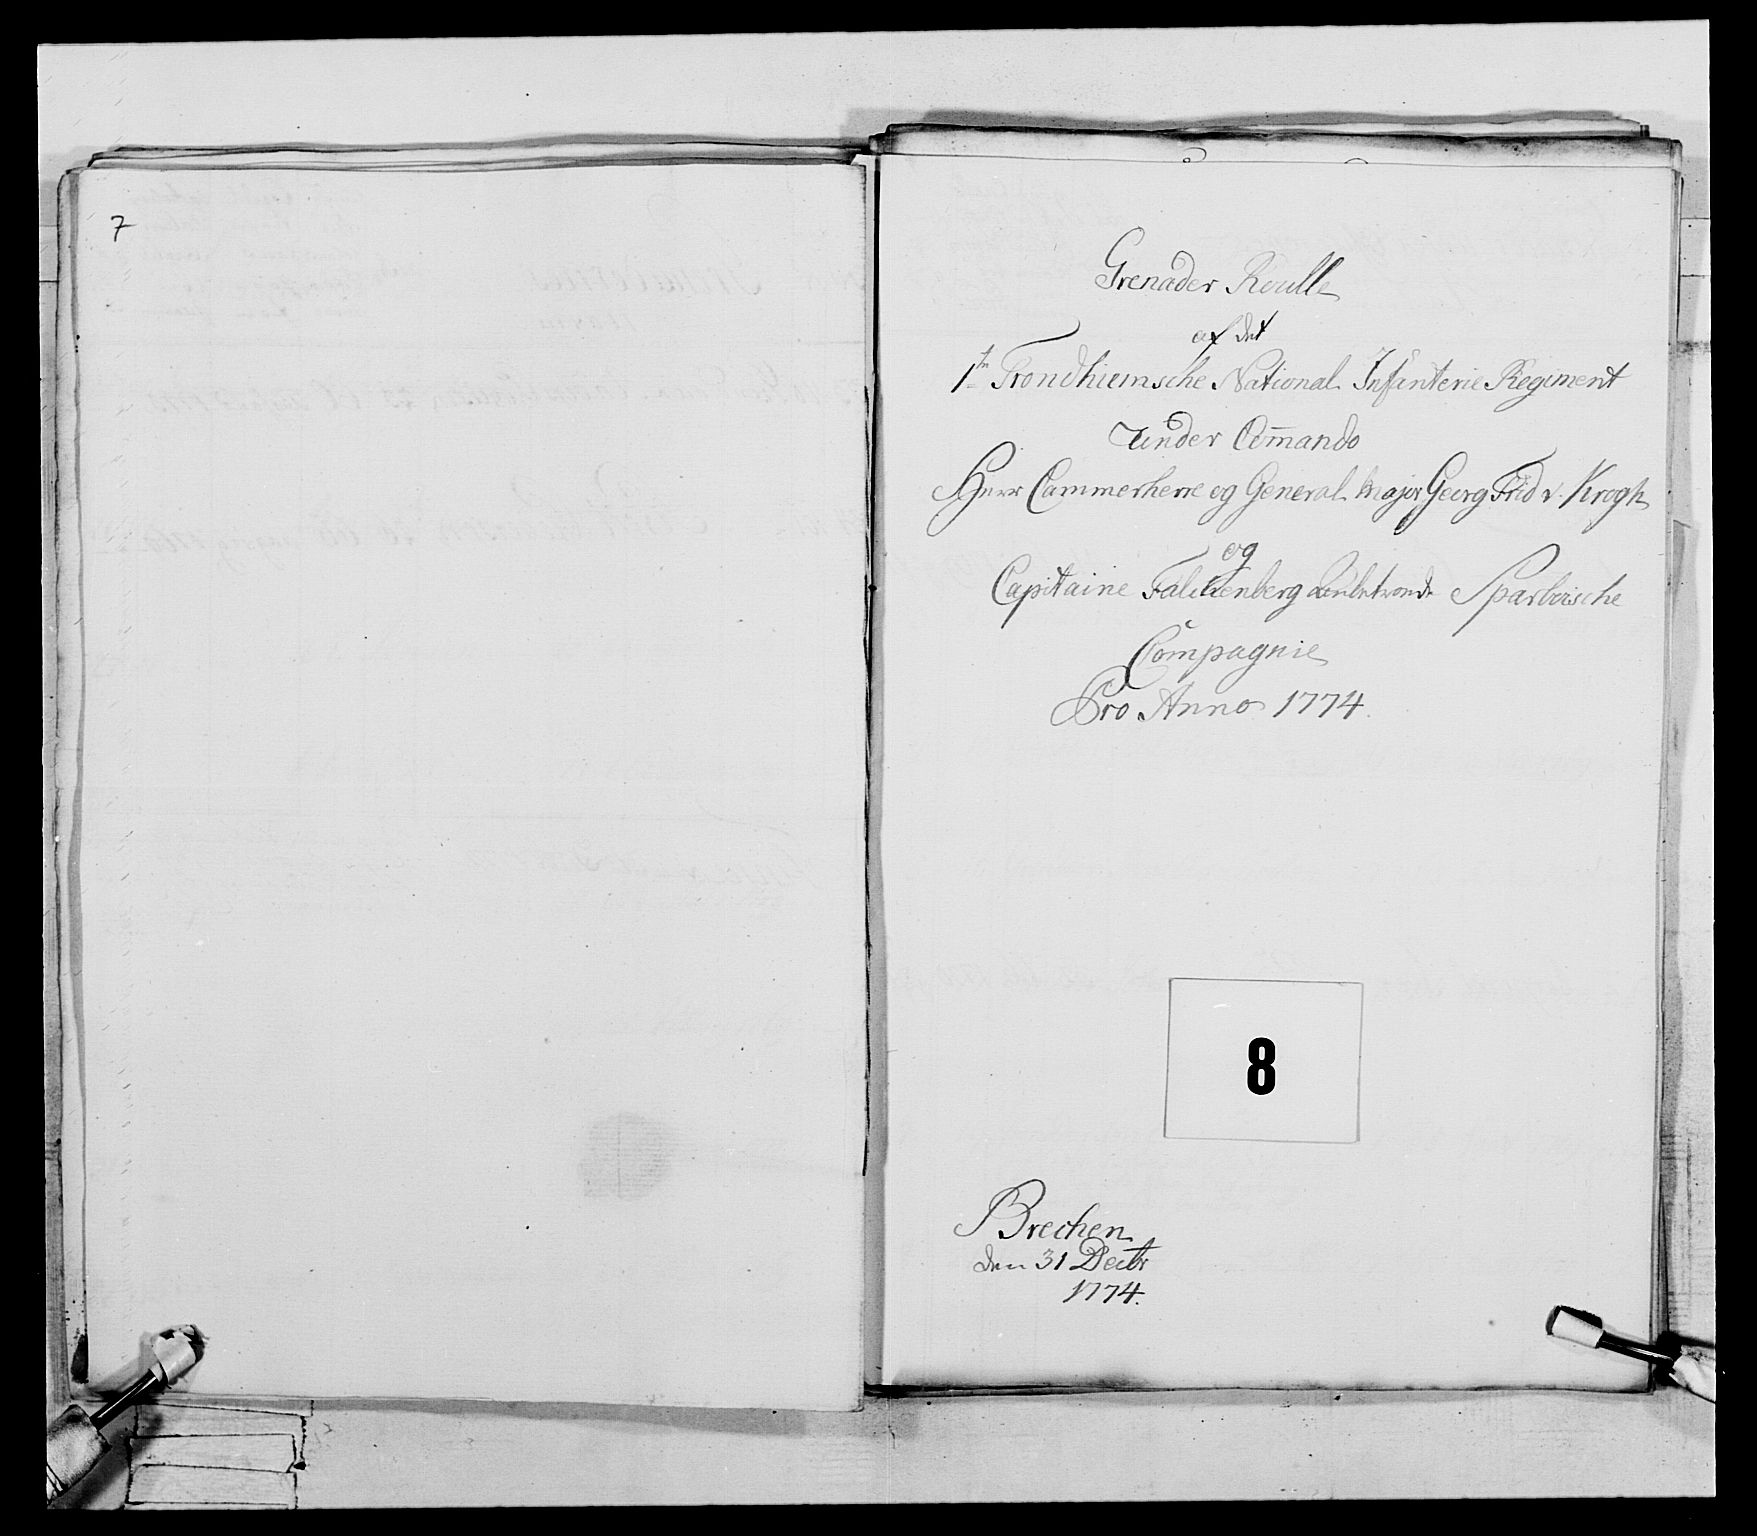 7
Grenader Roulle
af det
1ste Trondhiemsche National Infanterie Regiment
under Com̅ando
Herr Cammerherre og General Major Georg Frid v. Krogh
og
Capitaine Falckenberg anbetroede Sparboische
Compagnie
Pro Anno 1774.
8
Brechen
den 31 Decbr
1774.